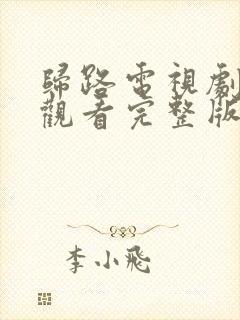 歸路電視劇
觀看完整版
李小飛